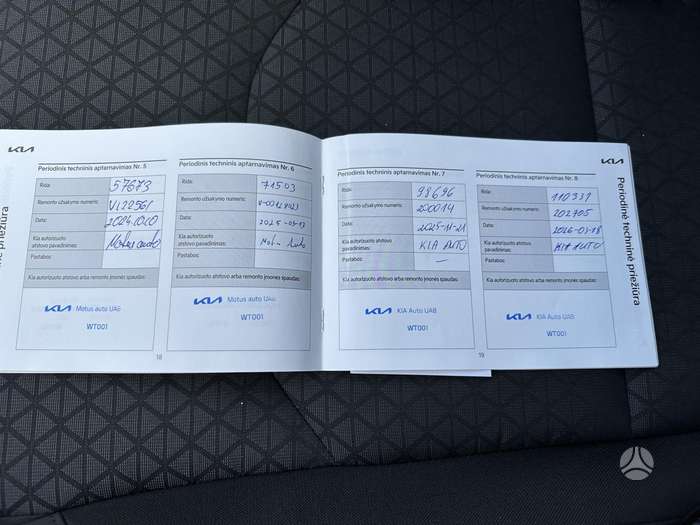 KIA
Periodinis techninis aptarnavimas Nr. 5
Rida: 57673
Remonto užsakymo numeris: V122561
Data: 20241010
Kia autorizuoto atstovo pavadinimas: Motus auto
Pastabos:
Kia autorizuoto atstovo arba remonto įmonės spaudas:
KIA Motus auto UAB
WT001
Periodinis techninis aptarnavimas Nr. 6
Rida: 71503
Remonto užsakymo numeris:
Data:
Kia autorizuoto atstovo pavadinimas:
Pastabos:
Kia autorizuoto atstovo arba remonto įmonės spaudas:
KIA Motus auto UAB
WT001
18
Periodinis techninis aptarnavimas Nr. 7
Rida: 98696
Remonto užsakymo numeris: 200014
Data:
Kia autorizuoto atstovo pavadinimas: KIA AUTO
Pastabos: —
Kia autorizuoto atstovo arba remonto įmonės spaudas:
KIA KIA Auto UAB
WT001
Periodinis techninis aptarnavimas Nr. 8
Rida: 110331
Remonto užsakymo numeris: 202705
Data:
Kia autorizuoto atstovo pavadinimas: KIA AUTO
Pastabos:
Kia autorizuoto atstovo arba remonto įmonės spaudas:
KIA KIA Auto UAB
WT001
19
KIA
Periodinė techninė priežiūra